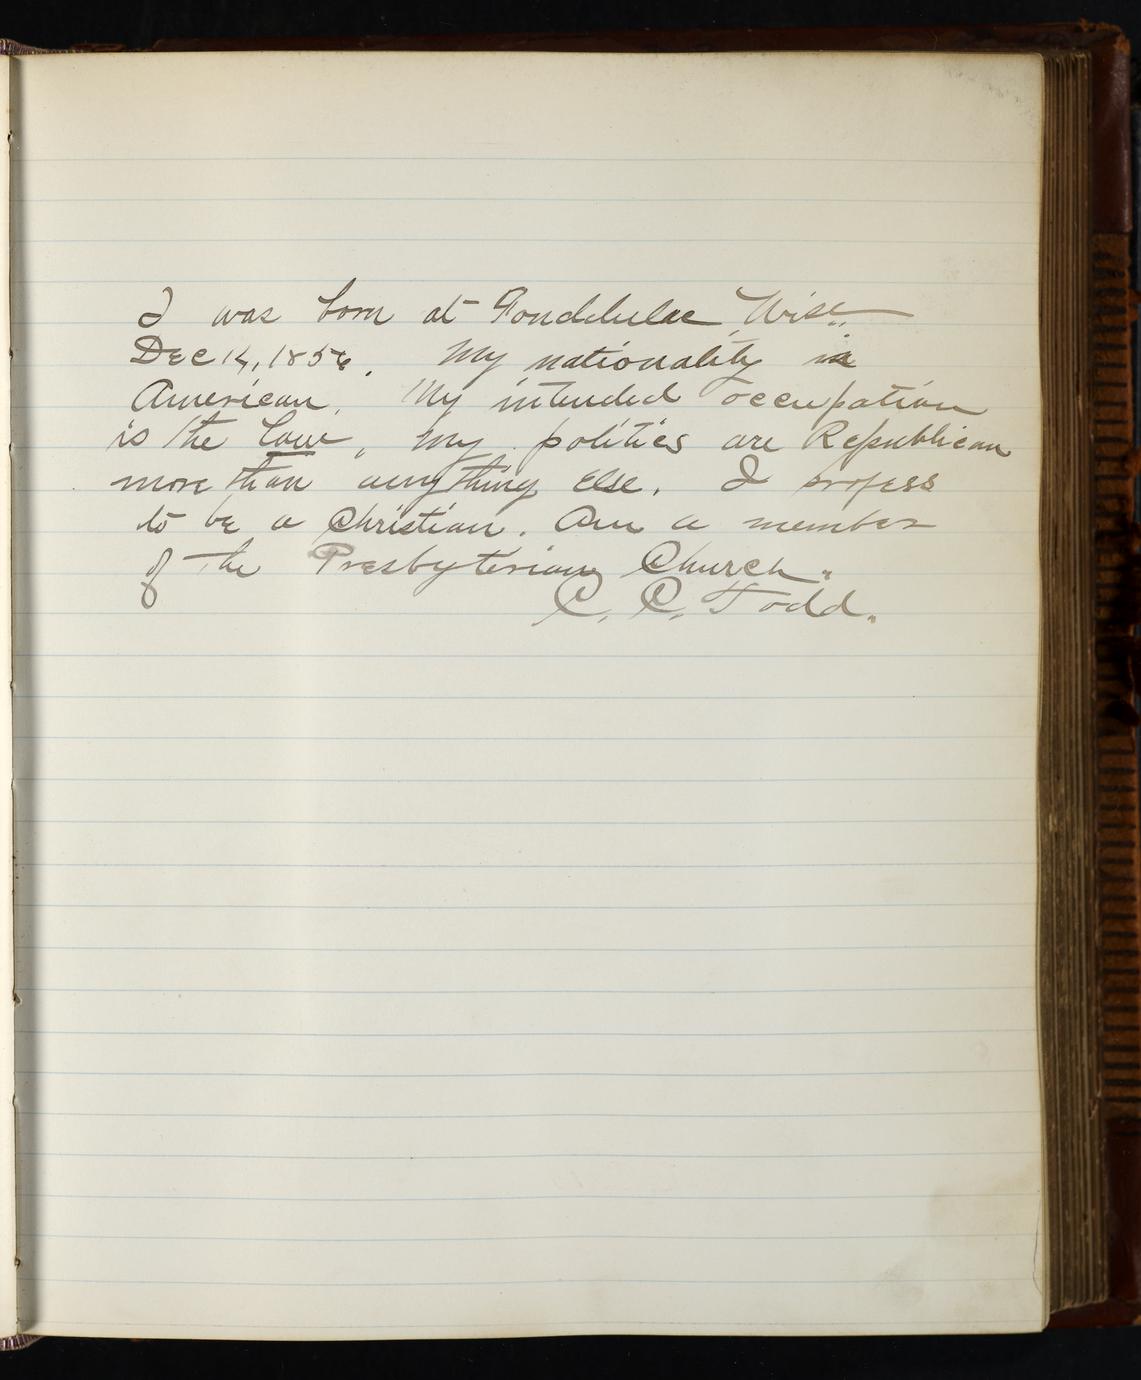 I was born at Fonddulac Wisc.
Dec 14, 1856. My nationality is
American. My intended occupation
is the law. My politics are Republican
more than anything else. I profess
to be a Christian. Am a member
of the Presbyterian Church.
C. C. Todd.